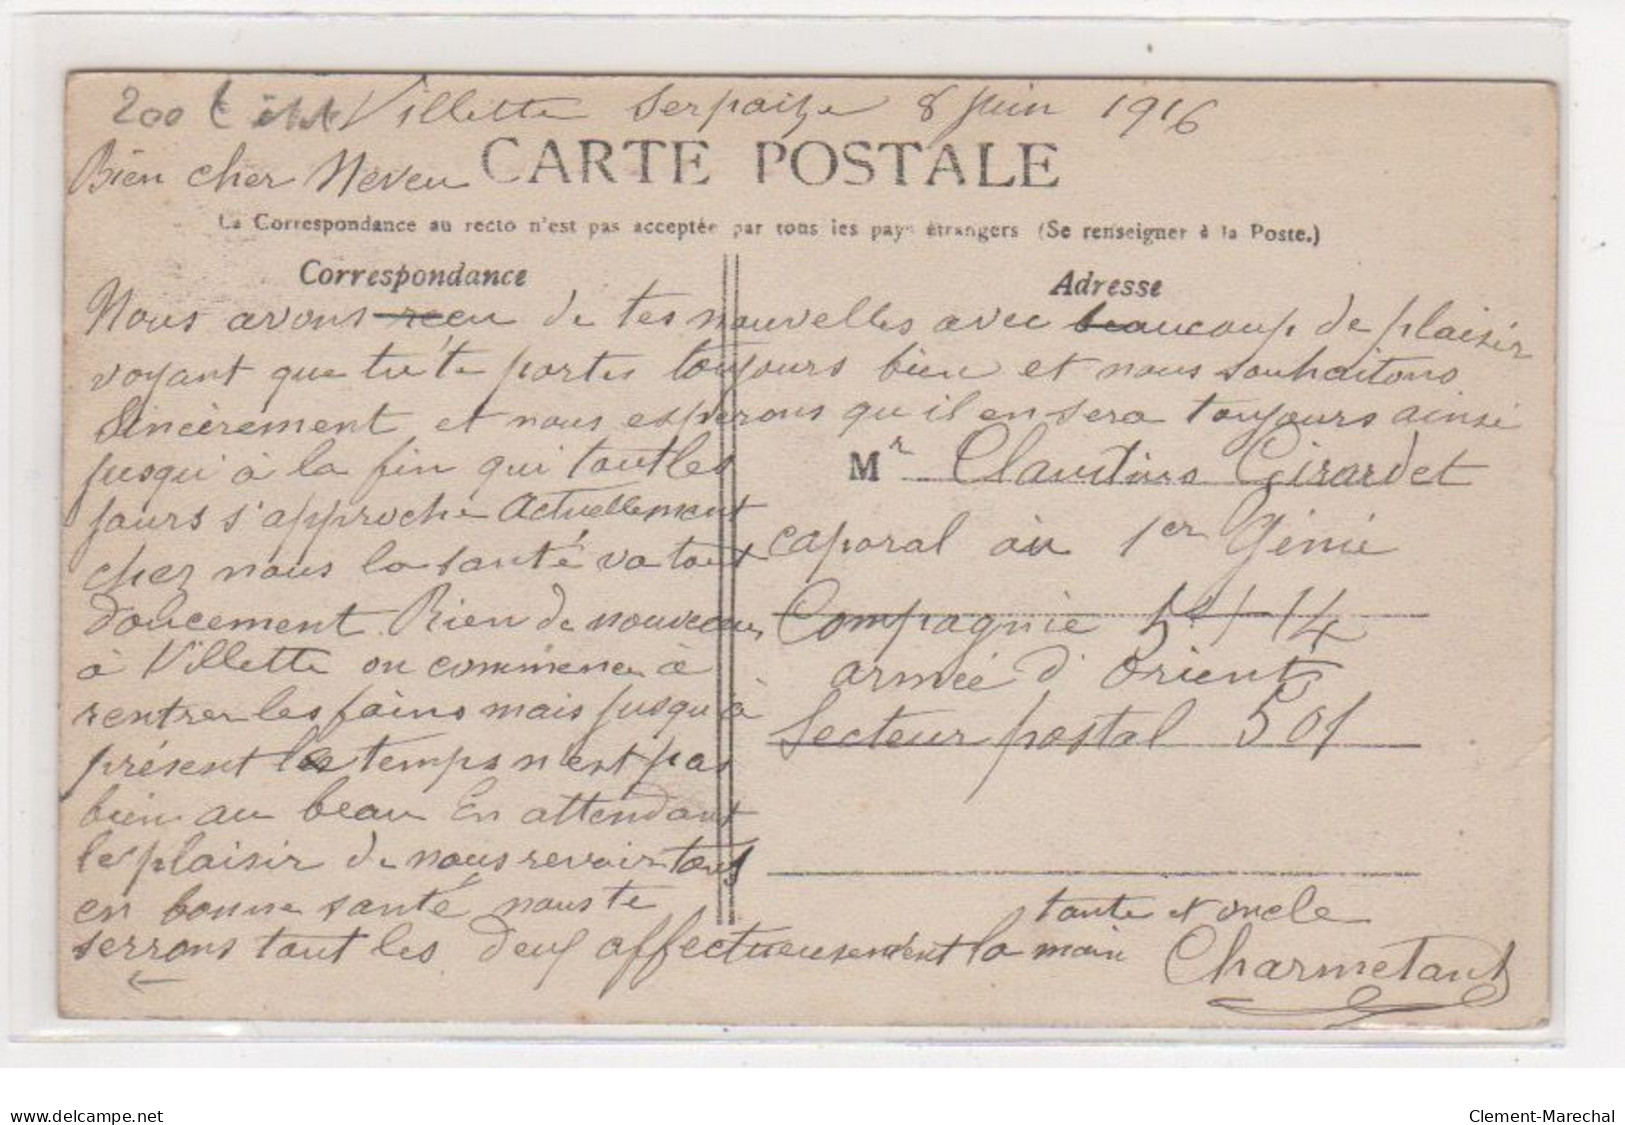 200 Villette Serpaize 8 juin 1916
Bien cher Neveu
CARTE POSTALE
La Correspondance au recto n'est pas acceptée par tous les pays étrangers (Se renseigner à la Poste.)
Correspondance
Adresse
Nous avons reçu de tes nouvelles avec beaucoup de plaisir
voyant que tu te portes toujours bien et nous souhaitons
Sincèrement et nous espérons qu'il en sera toujours ainsi
jusqu'à la fin qui tout les
jours s'approche Actuellement
chez nous la santé va tout
doucement Rien de nouveau
à Villette on commence à
rentrer les foins mais jusqu'à
présent le temps n'est pas
bien au beau En attendant
le plaisir de nous revoir tous
en bonne santé nous te
serrons tout les deux affectueusement la main
Mr Claudius Girardet
caporal au 1er Génie
Compagnie 14
armée d'Orient
Secteur postal 501
tante et oncle
Charmetant
delcampe.net
Clement-Marechal